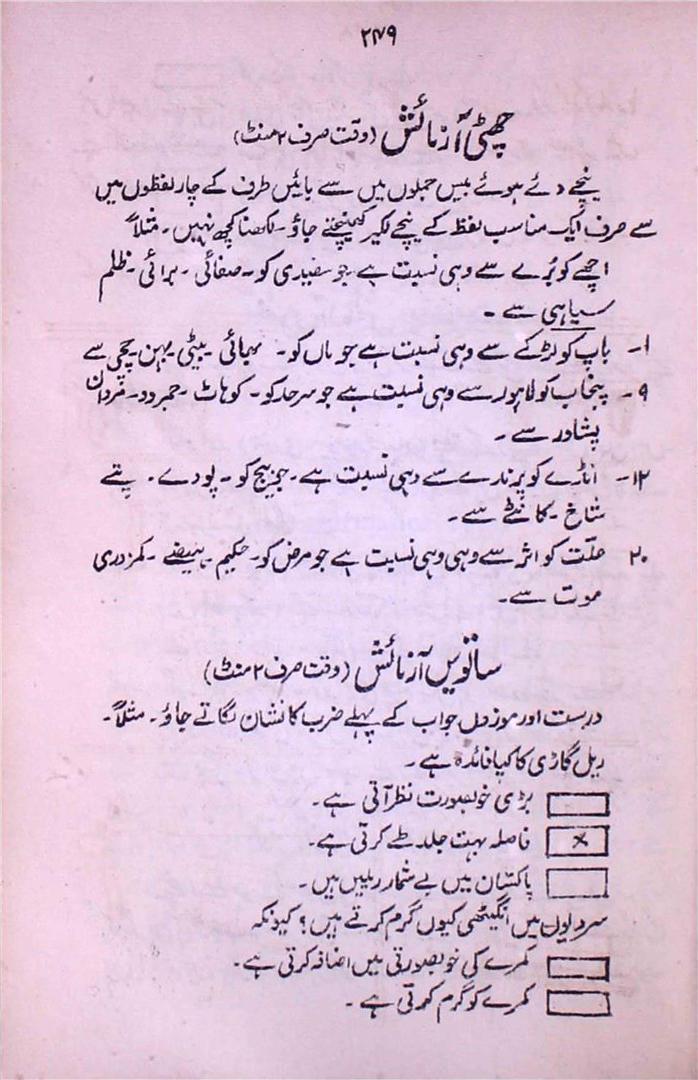 ۲۴۹
چھٹی آزمائش (وقت صرف ۲ منٹ)
نیچے دئے ہوئے بیس جملوں میں سے بائیں طرف کے چار لفظوں میں
سے صرف ایک مناسب لفظ کے نیچے لکیر کھینچتے جاؤ۔ لکھنا کچھ نہیں۔ مثلاً
اچھے کو بُرے سے وہی نسبت ہے جو سفیدی کو۔ صفائی ۔ برائی ۔ ظلم
سیاہی سے ۔
۱۔ باپ کو لڑکے سے وہی نسبت ہے جو ماں کو۔ بھائی ۔ بیٹی ۔ بہن ۔ چچی سے
۹۔ پنجاب کو لاہور سے وہی نسبت ہے جو سرحد کو۔ کوہاٹ ۔ جمرود۔ مردان
پشاور سے ۔
۱۲۔ انڈے کو پرندے سے وہی نسبت ہے ۔ جو بیج کو ۔ پودے ۔ پتے
شاخ ۔ کانٹے سے ۔
۲۰ علّت کو اثر سے وہی وہی نسبت ہے جو مرض کو۔ حکیم ۔ ہیضے ۔ کمزدری
موت سے ۔
ساتویں آزمائش (وقت صرف ۲ منٹ)
درست اور موزوں جواب کے پہلے ضرب کا نشان لگاتے جاؤ ۔ مثلاً۔
ریل گاڑی کا کیا فائدہ ہے ۔
بڑی خوبصورت نظر آتی ہے ۔
× فاصلہ بہت جلد طے کرتی ہے ۔
پاکستان میں بے شمار ریلیں ہیں ۔
سردیوں میں انگیٹھی کیوں گرم کرتے ہیں ؟ کیونکہ
کمرے کی خوبصورتی میں اضافہ کرتی ہے ۔
کمرے کو گرم کرتی ہے ۔